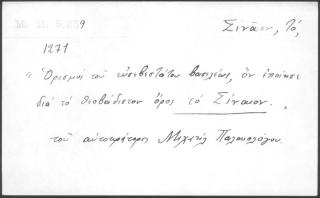 M. M. 5, 239
Σίναιον, Τό,
1271
"Ὁρισμὸς τοῦ εὐσεβεστάτου βασιλέως, ὃν ἐποίησε
διὰ τὸ θεοβάδιστον ὄρος τὸ Σίναιον.
τοῦ αὐτοκράτορος Μιχαὴλ Παλαιολόγου.